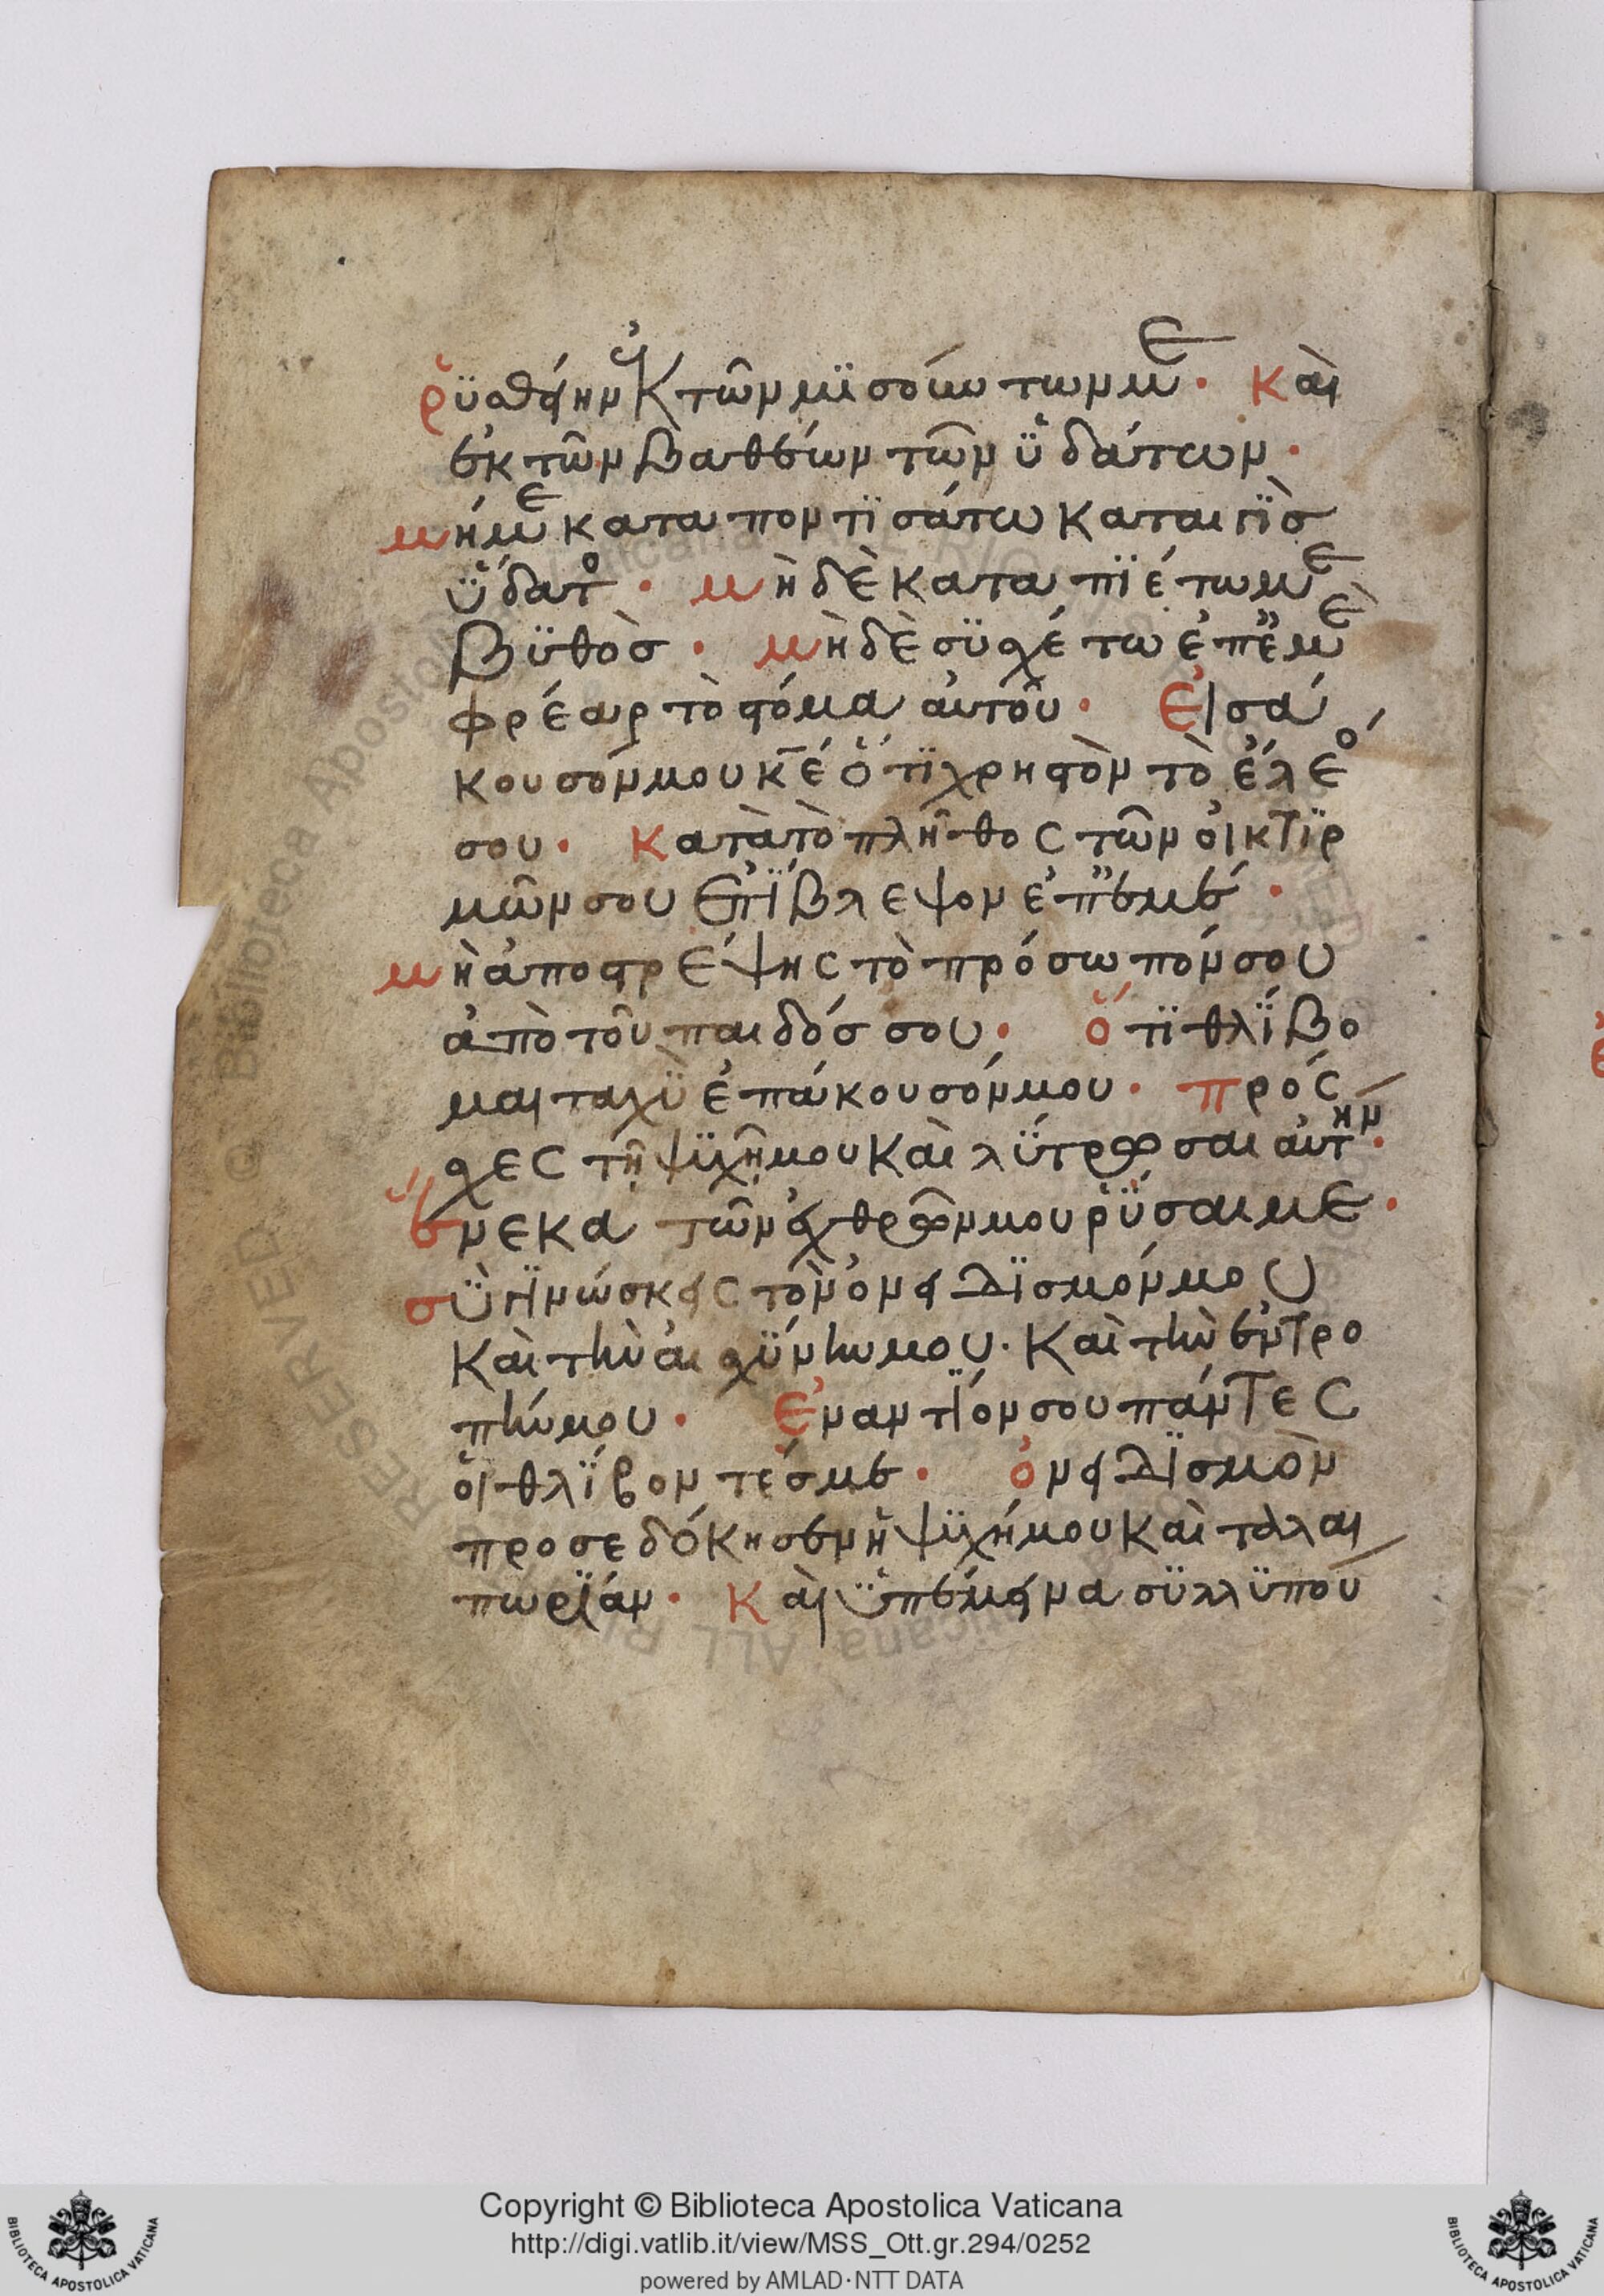 ῥϋσθείην ἐκ τῶν μϊσούντων με· Καὶ
ἐκ τῶν βαθέων τῶν ϋδάτων·
μή με καταποντϊσάτω καταιγῒσ
ϋδατο· μὴ δὲ καταπϊέτω με
βϋθὸσ· μὴ δὲ σϋσχέτω ἐπ ἐμὲ
φρέαρ τὸ στόμα αὐτοῦ· Εἰσά
κουσόν μου κ̅ε ὅτϊ χρηστὸν τὸ ἔλεο
σου· Κατὰ τὸ πλῆθος τῶν οἰκτϊρ
μῶν σου ἐπΐβλεψον ἐπ ἐμέ·
μὴ ἀποστρέψης τὸ πρόσωπόν σου
ἀπὸ τοῦ παιδόσ σου· ὅτϊ θλΐβο
μαι ταχὺ ἐπάκουσόν μου· πρόσ
χες τῆ ψϋχῆ μου Καὶ λΰτρωσαι αὐτήν·
ἕνεκα τῶν ἐχθρῶν μου ῥῦσαι με·
σϋ γϊνώσκεις τὸν ὀνειδϊσμόν μου
Καὶ τὴν αἰσχΰνην μου· Καὶ τὴν ἐντρο
πήν μου· Ἐναντΐον σου πάντες
οἱ θλΐβοντέσ με· ὀνειδϊσμὸν
προσεδόκησεν ἡ ψϋχή μου Καὶ ταλαι
πωρΐαν· Καὶ ϋπέμεινα σϋλλϋπού
Copyright © Biblioteca Apostolica Vaticana
http://digi.vatlib.it/view/MSS_Ott.gr.294/0252
powered by AMLAD·NTT DATA